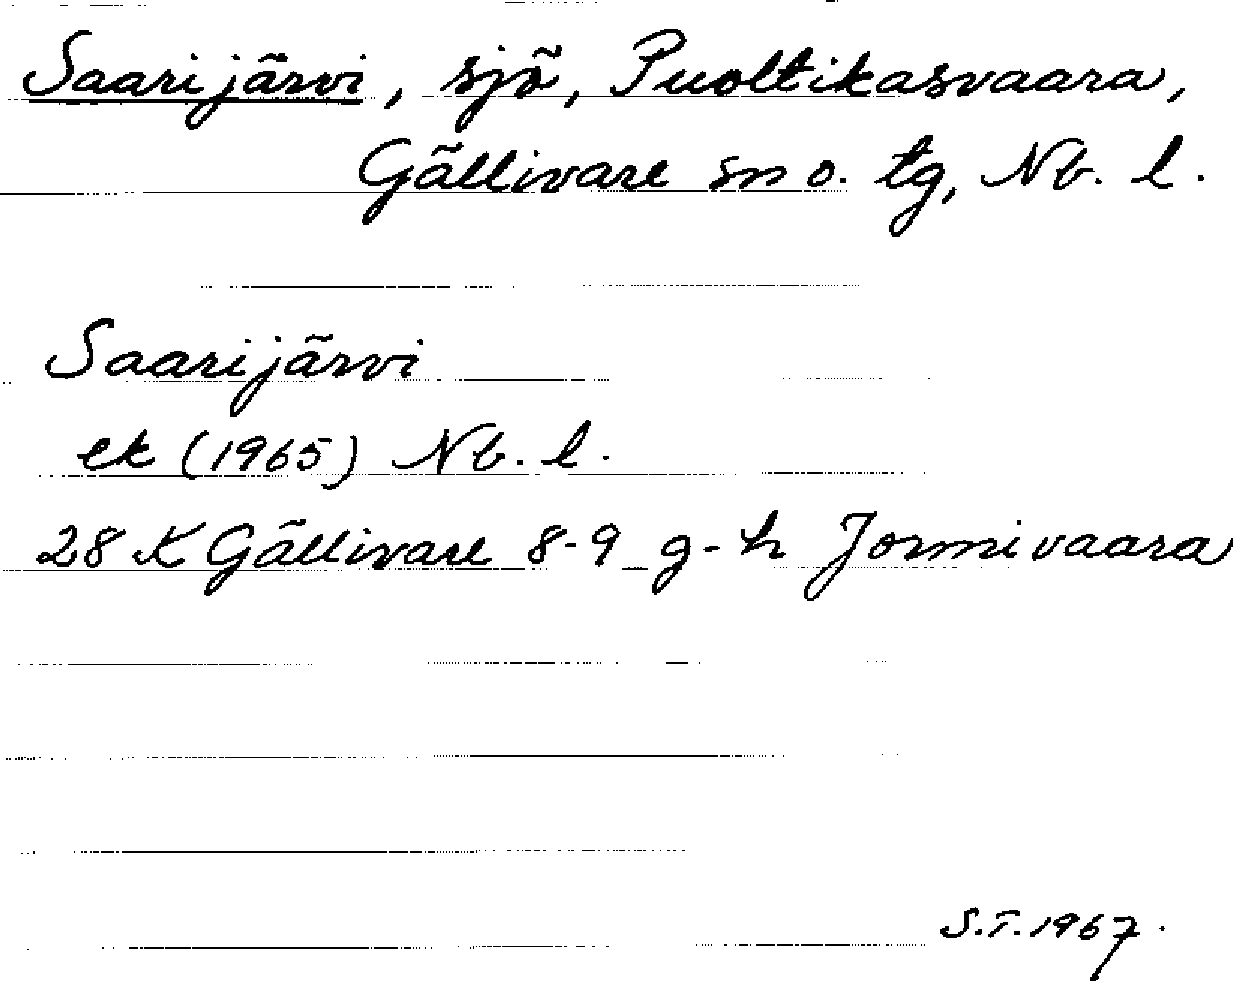 Saarijärvi, sjö, Puoltikasvaara,
Gällivare sn o. tg, Nb. l.
Saarijärvi
ek (1965) Nb. l.
28 K Gällivare 8-9 g-h Jormivaara
S.T. 1967.